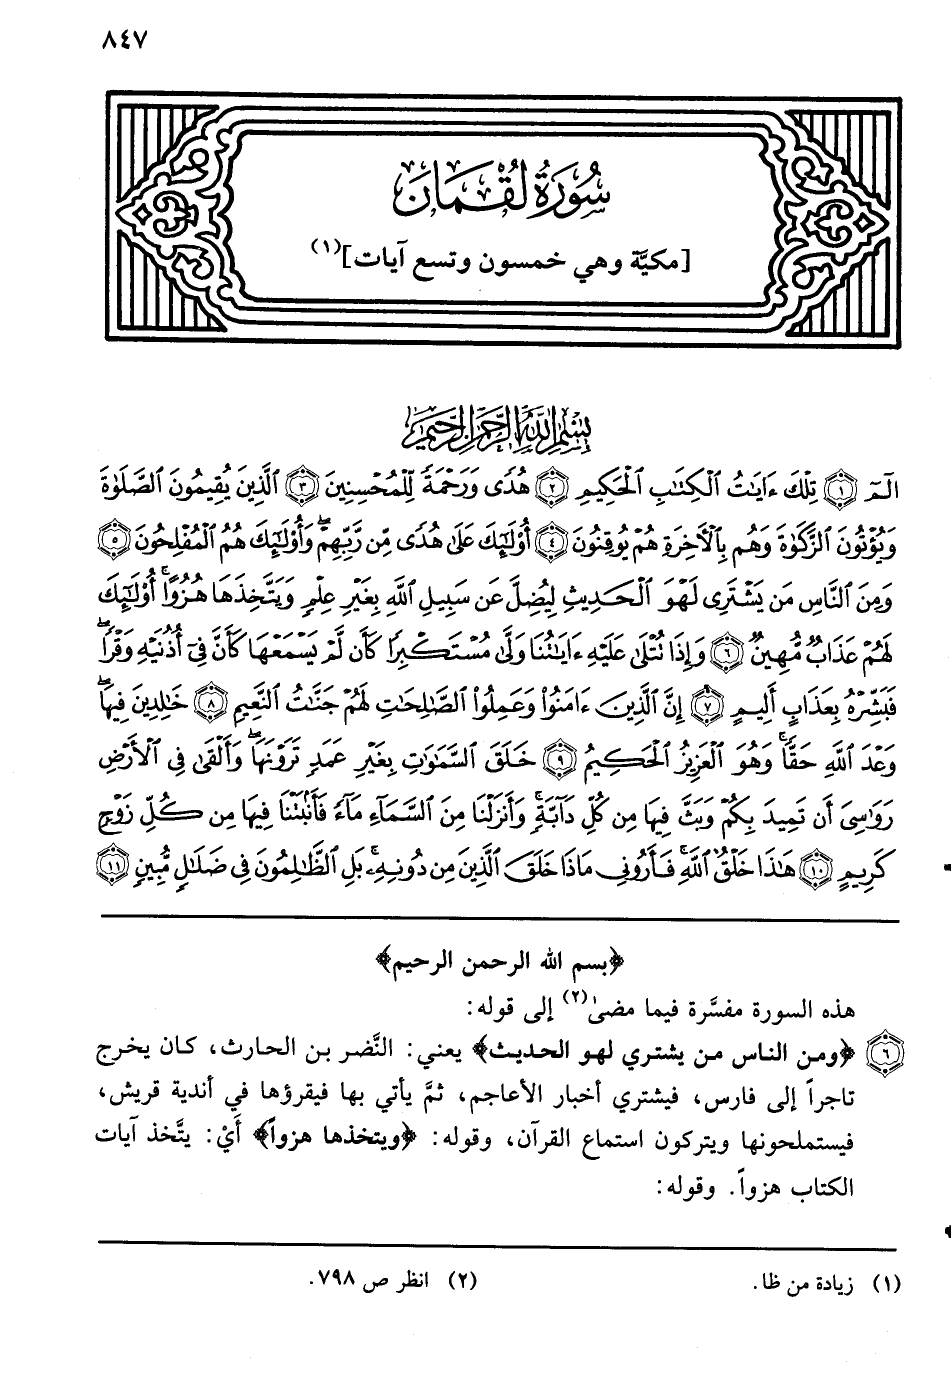 ٨٤٧
سُورَةُ لُقْمَان
[مكيَّة وهي خمسون وتسع آيات](١)
بِسْمِ ٱللَّهِ ٱلرَّحْمَٰنِ ٱلرَّحِيمِ
الٓمٓ ١ تِلْكَ ءَايَٰتُ ٱلْكِتَٰبِ ٱلْحَكِيمِ ٢ هُدًى وَرَحْمَةً لِّلْمُحْسِنِينَ ٣ ٱلَّذِينَ يُقِيمُونَ ٱلصَّلَوٰةَ
وَيُؤْتُونَ ٱلزَّكَوٰةَ وَهُم بِٱلْءَاخِرَةِ هُمْ يُوقِنُونَ ٤ أُو۟لَٰٓئِكَ عَلَىٰ هُدًى مِّن رَّبِّهِمْ ۖ وَأُو۟لَٰٓئِكَ هُمُ ٱلْمُفْلِحُونَ ٥
وَمِنَ ٱلنَّاسِ مَن يَشْتَرِى لَهْوَ ٱلْحَدِيثِ لِيُضِلَّ عَن سَبِيلِ ٱللَّهِ بِغَيْرِ عِلْمٍ وَيَتَّخِذَهَا هُزُوًا ۚ أُو۟لَٰٓئِكَ
لَهُمْ عَذَابٌ مُّهِينٌ ٦ وَإِذَا تُتْلَىٰ عَلَيْهِ ءَايَٰتُنَا وَلَّىٰ مُسْتَكْبِرًا كَأَن لَّمْ يَسْمَعْهَا كَأَنَّ فِىٓ أُذُنَيْهِ وَقْرًا ۖ
فَبَشِّرْهُ بِعَذَابٍ أَلِيمٍ ٧ إِنَّ ٱلَّذِينَ ءَامَنُوا۟ وَعَمِلُوا۟ ٱلصَّٰلِحَٰتِ لَهُمْ جَنَّٰتُ ٱلنَّعِيمِ ٨ خَٰلِدِينَ فِيهَا ۖ
وَعْدَ ٱللَّهِ حَقًّا ۚ وَهُوَ ٱلْعَزِيزُ ٱلْحَكِيمُ ٩ خَلَقَ ٱلسَّمَٰوَٰتِ بِغَيْرِ عَمَدٍ تَرَوْنَهَا ۖ وَأَلْقَىٰ فِى ٱلْأَرْضِ
رَوَٰسِىَ أَن تَمِيدَ بِكُمْ وَبَثَّ فِيهَا مِن كُلِّ دَآبَّةٍ ۚ وَأَنزَلْنَا مِنَ ٱلسَّمَآءِ مَآءً فَأَنۢبَتْنَا فِيهَا مِن كُلِّ زَوْجٍ
كَرِيمٍ ١٠ هَٰذَا خَلْقُ ٱللَّهِ فَأَرُونِى مَاذَا خَلَقَ ٱلَّذِينَ مِن دُونِهِۦ ۚ بَلِ ٱلظَّٰلِمُونَ فِى ضَلَٰلٍ مُّبِينٍ ١١
﴿بسم الله الرحمن الرحيم﴾
هذه السورة مفسَّرة فيما مضى(٢) إلى قوله:
٦ ﴿ومن الناس من يشتري لهو الحديث﴾ يعني: النَّضر بن الحارث، كان يخرج
تاجراً إلى فارس، فيشتري أخبار الأعاجم، ثمَّ يأتي بها فيقرؤها في أندية قريش،
فيستملحونها ويتركون استماع القرآن، وقوله: ﴿ويتخذها هزواً﴾ أَيْ: يتَّخذ آيات
الكتاب هزواً. وقوله:
(١) زيادة من ظا.
(٢) انظر ص ٧٩٨.